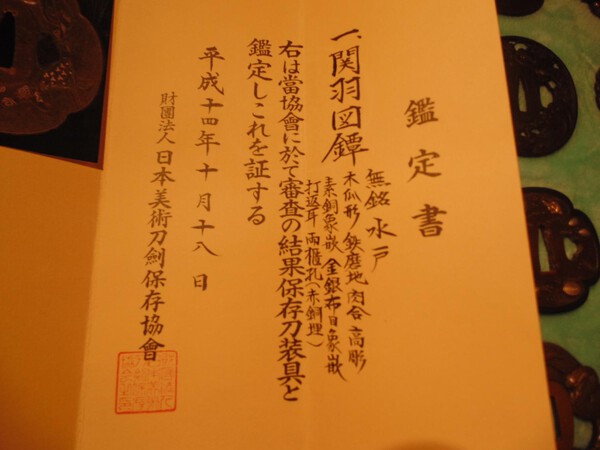 鑑定書
一、関羽図鐔
無銘 水戸
木瓜形 鉄磨地 肉合高彫
素銅象嵌 金銀布目象嵌
打返耳 両櫃孔（赤銅埋）
右は當協會に於て審査の結果保存刀装具と
鑑定しこれを証する
平成十四年十月十八日
財團法人 日本美術刀劍保存協會